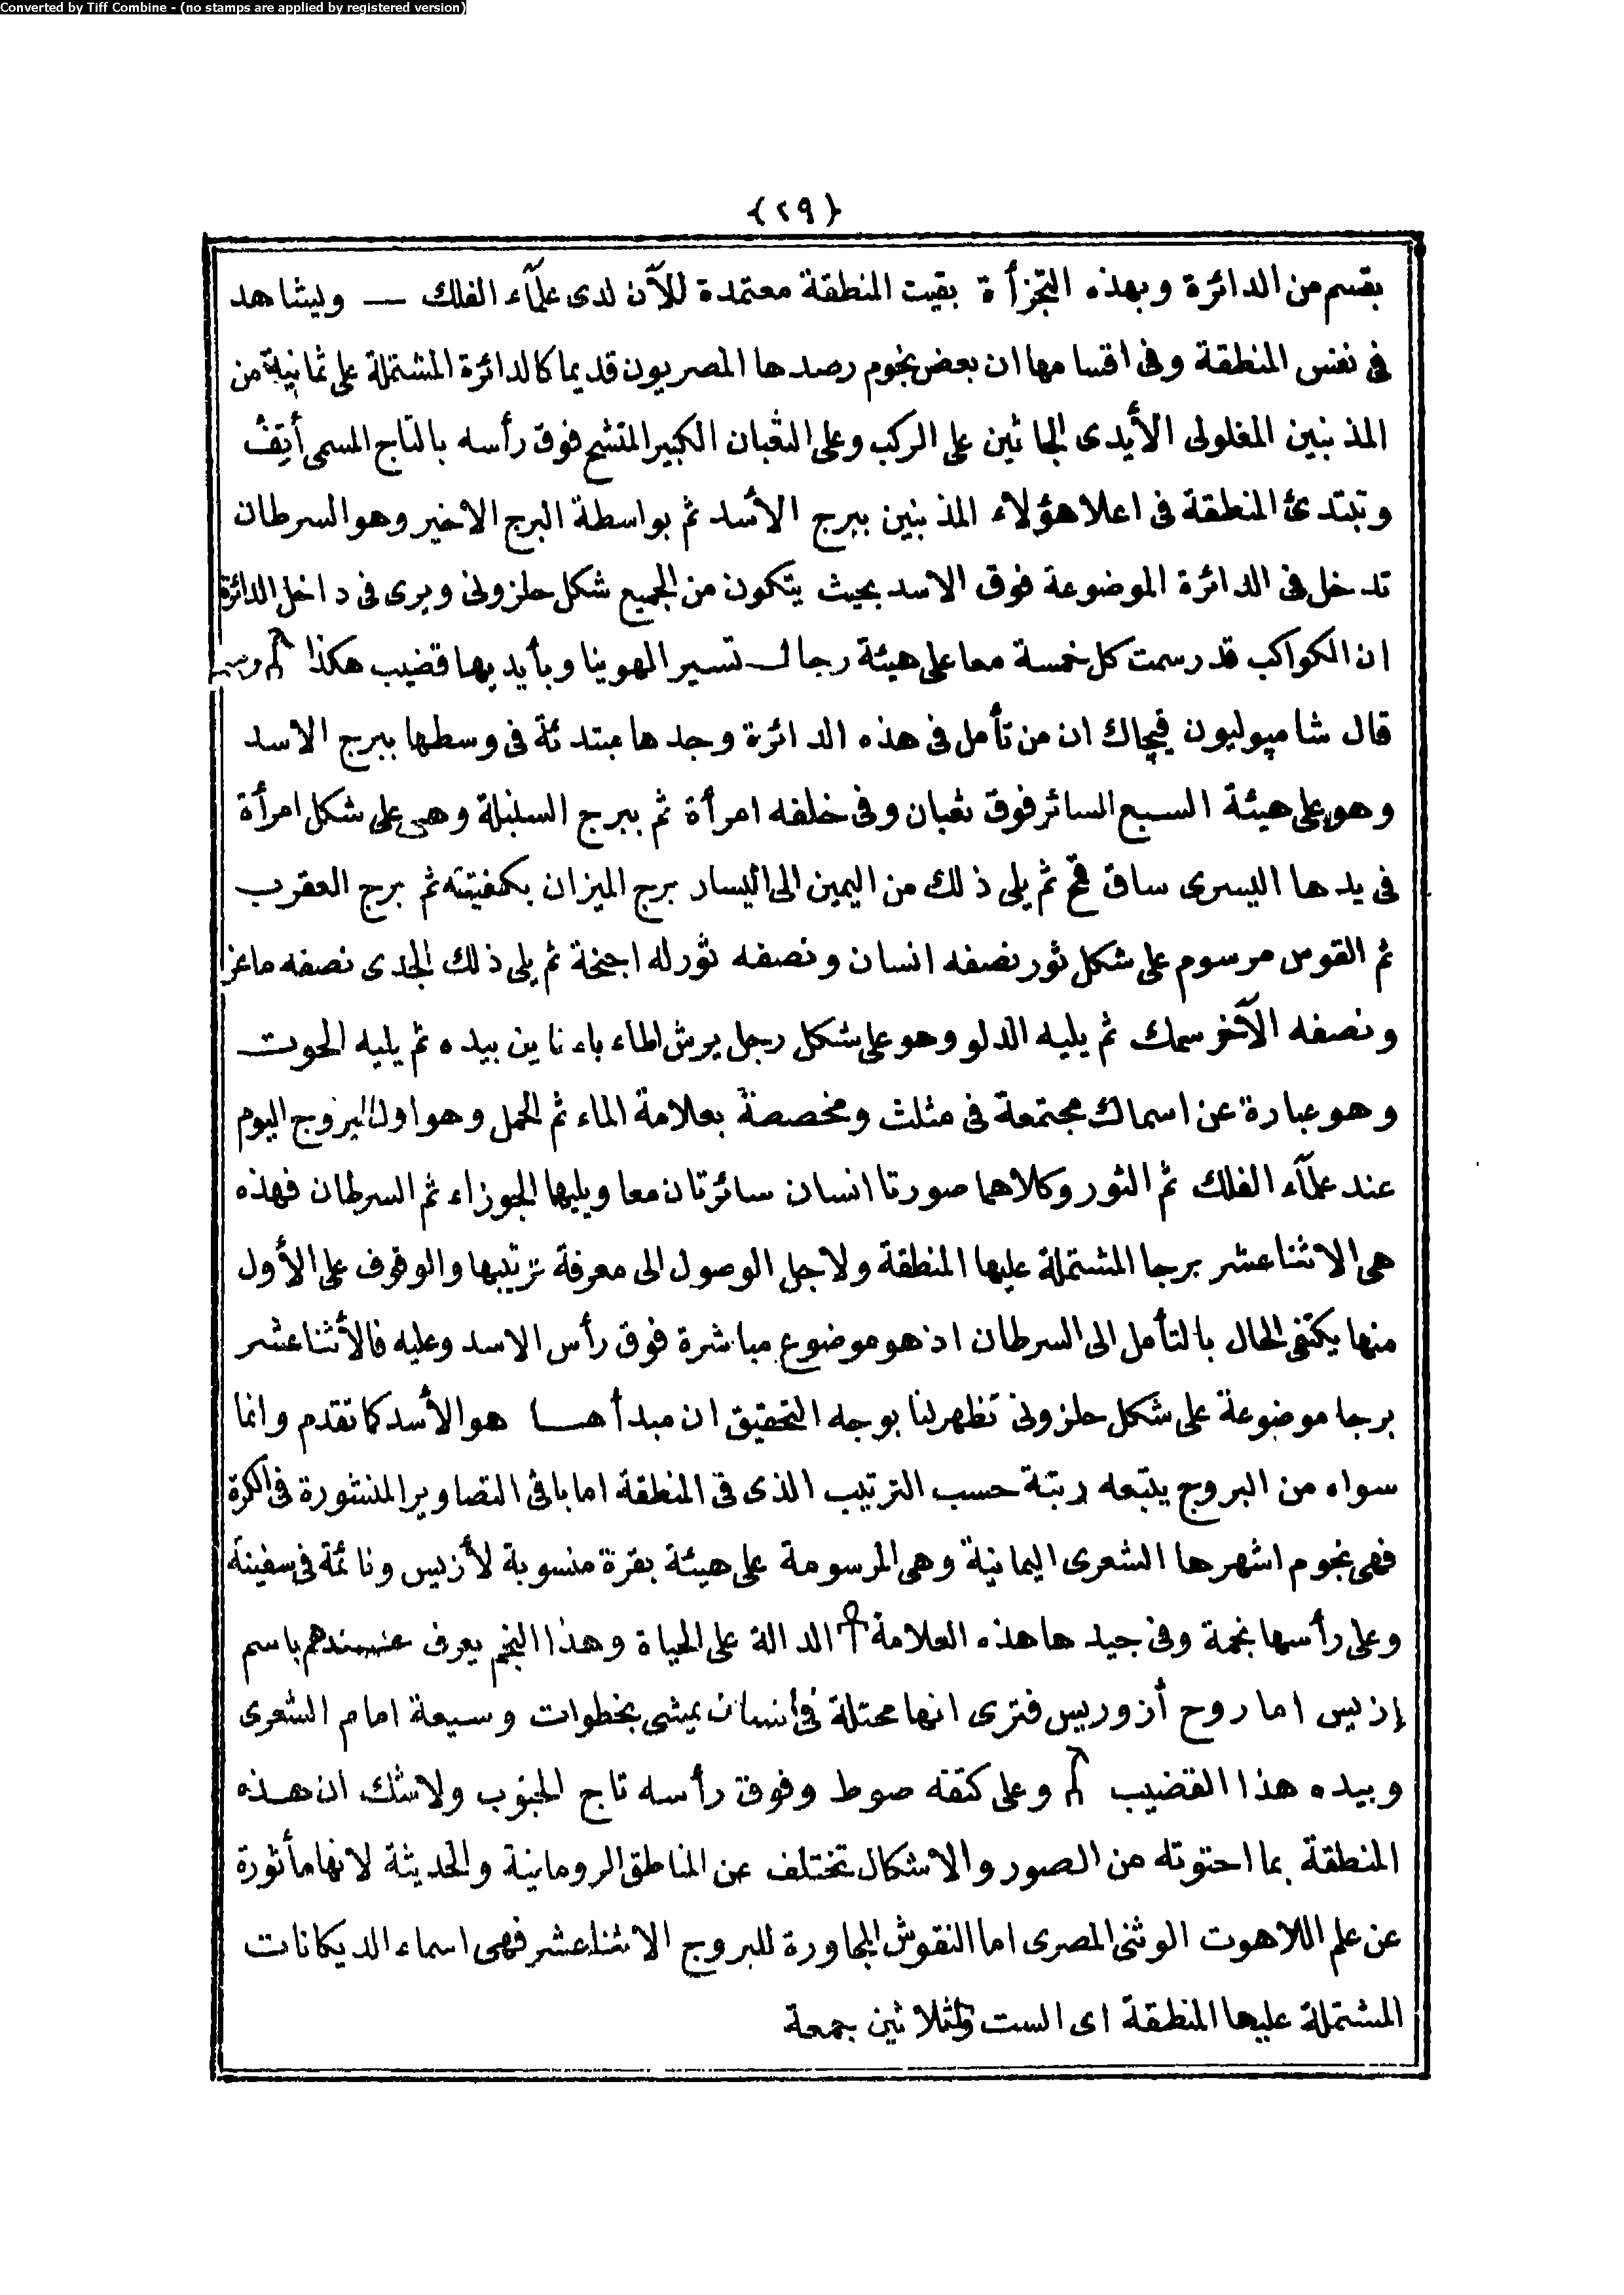 Converted by Tiff Combine - (no stamps are applied by registered version)
{٢٩}
بقسم من الدائرة وبهذه التجزأة بقيت المنطقة معتمدة للآن لدى علمآء الفلك — وليشاهد
فى نفس المنطقة وفى اقسامها ان بعض نجوم رصدها المصريون قديما كالدائرة المشتملة على ثمانية من
المذنبين المغلولى الأيدى الجاثين على الركب وعلى الثعبان الكبير المتشح فوق رأسه بالتاج المسمى أتِفْ
وتبتدئ المنطقة فى اعلا هؤلاء المذنبين ببرج الأسد ثم بواسطة البرج الاخير وهو السرطان
تدخل فى الدائرة الموضوعة فوق الاسد بحيث يتكون من الجميع شكل حلزونى ويرى فى داخل الدائرة
ان الكواكب قد رسمت كل خمسة معا على هيئة رجال تسير الهوينا وبأيديها قضيب هكذا
قال شامپوليون فيچاك ان من تأمل فى هذه الدائرة وجدها مبتدئة فى وسطها ببرج الاسد
وهو على هيئة السبع السائر فوق ثعبان وفى خلفه امرأة ثم ببرج السنبلة وهى على شكل امرأة
فى يدها اليسرى ساق قمح ثم يلى ذلك من اليمين الى اليسار برج الميزان بكفتيته ثم برج العقرب
ثم القوس مرسوم على شكل ثور نصفه انسان ونصفه ثور له اجنحة ثم يلى ذلك الجدى نصفه ماعز
ونصفه الآخر سمك ثم يليه الدلو وهو على شكل رجل يرش الماء باءناين بيده ثم يليه الحوت
وهو عبارة عن اسماك مجتمعة فى مثلث ومخصصة بعلامة الماء ثم الحمل وهو اول البروج اليوم
عند علمآء الفلك ثم الثور وكلاهما صورتا انسان سائرتان معا ويليها الجوزاء ثم السرطان فهذه
هى الاثنا عشر برجا المشتملة عليها المنطقة ولاجل الوصول الى معرفة ترتيبها والوقوف على الأول
منها يكتفى الحال بالتأمل الى السرطان اذ هو موضوع مباشرة فوق رأس الاسد وعليه فالأثنا عشر
برجا موضوعة على شكل حلزونى تظهر لنا بوجه التحقيق ان مبدأها هو الأسد كما تقدم وانما
سواه من البروج يتبعه رتبة حسب الترتيب الذى فى المنطقة اما باقى التصاوير المنشورة فى الكرة
فهى نجوم اشهرها الشعرى اليمانية وهى المرسومة على هيئة بقرة منسوبة لأزيس ونائمة فى سفينة
وعلى رأسها نجمة وفى جيدها هذه العلامة ☥ الدالة على الحياة وهذا النجم يعرف عندهم باسم
إزيس اما روح أزوريس فترى انها محتلة فى انسان يمشى بخطوات وسيعة امام الشعرى
وبيده هذا القضيب وعلى كتفه صوط وفوق رأسه تاج الجنوب ولاشك ان هذه
المنطقة بما احتوته من الصور والاشكال تختلف عن المناطق الرومانية والحديثة لانها مأثورة
عن علم اللاهوت الوثنى المصرى اما النقوش المجاورة للبروج الاثنا عشر فهى اسماء الديكانات
المشتملة عليها المنطقة اى الست والثلاثين جمعة